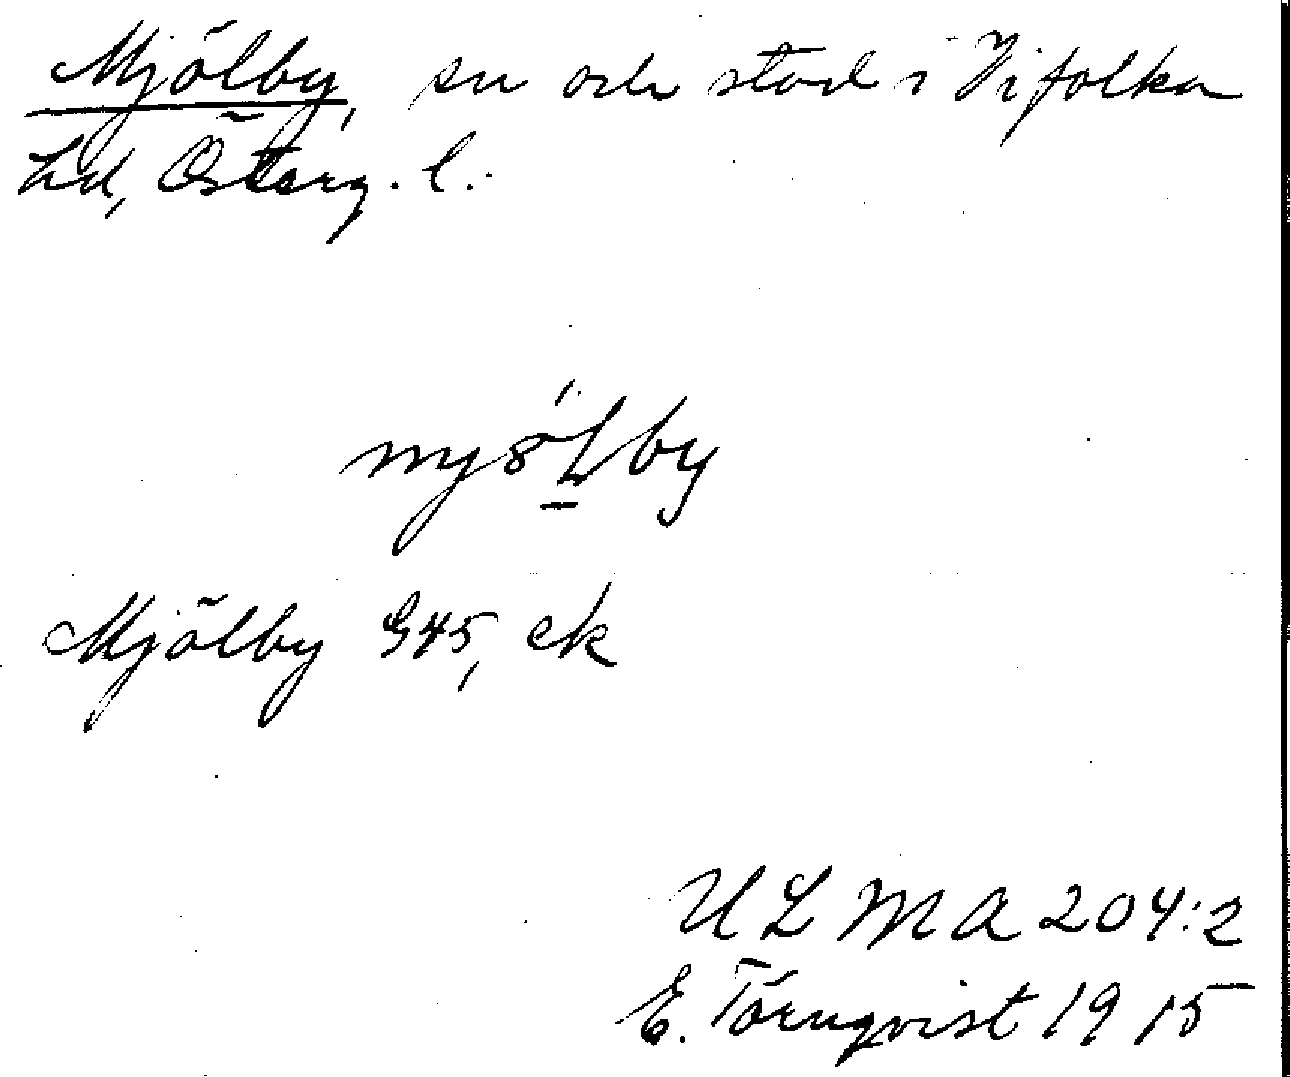 Mjölby, sn och stad i Vifolka
hd, Österg. l.
Mjölby G45, ek
ULMA 204:2
E. Törnqvist 1915